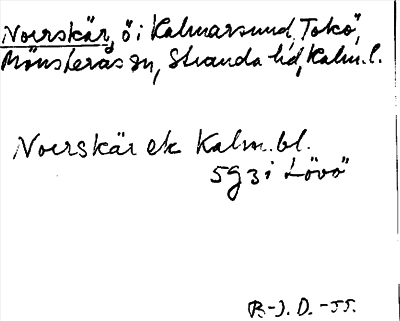 Norrskär, ö i Kalmarsund, Tokö,
Mönsterås sn, Stranda hd, Kalm. l.
Norrskär ek Kalm. bl.
5g3i Lövö
R.-J. D. -55.